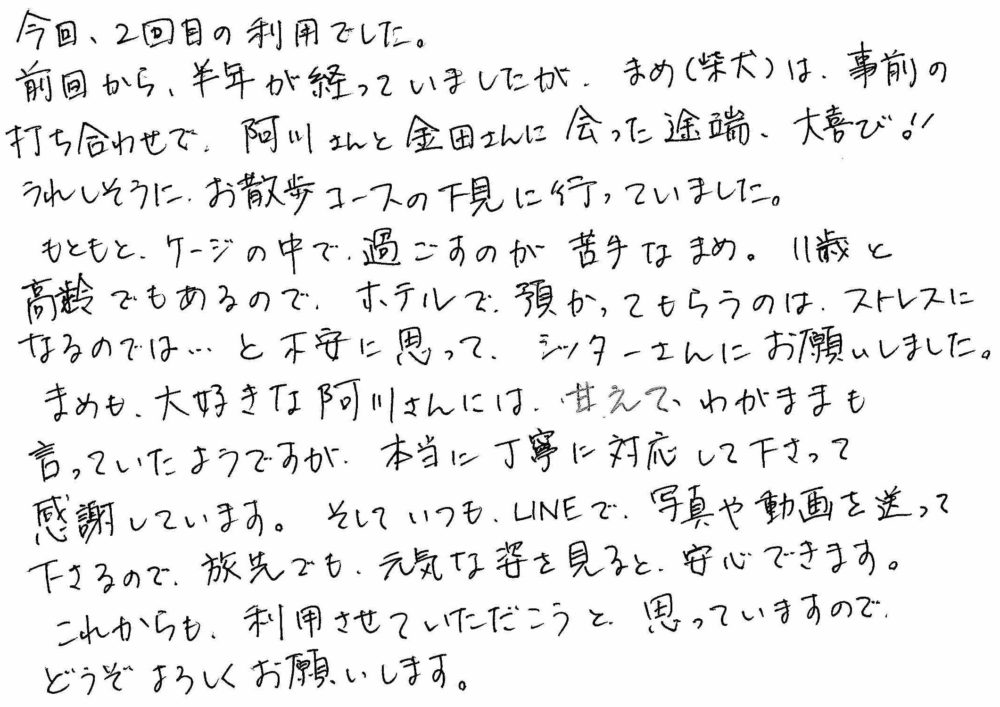 今回、2回目の利用でした。
前回から、半年が経っていましたが、まめ(柴犬)は、事前の
打ち合わせで、阿川さんと金田さんに会った途端、大喜び!!
うれしそうに、お散歩コースの下見に行っていました。
もともと、ケージの中で、過ごすのが苦手なまめ。11歳と
高齢でもあるので、ホテルで、預かってもらうのは、ストレスに
なるのでは…と不安に思って、シッターさんにお願いしました。
まめも、大好きな阿川さんには、甘えて、わがままも
言っていたようですが、本当に丁寧に対応して下さって
感謝しています。そしていつも、LINEで、写真や動画を送って
下さるので、旅先でも、元気な姿を見ると、安心できます。
これからも、利用させていただこうと、思っていますので、
どうぞよろしくお願いします。